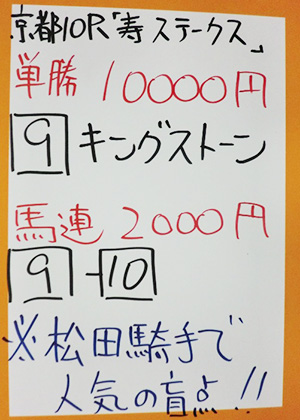 京都10R「寿ステークス」
単勝 10000円
9 キングストーン
馬連 2000円
9-10
※松田騎手で
人気の盲点!!